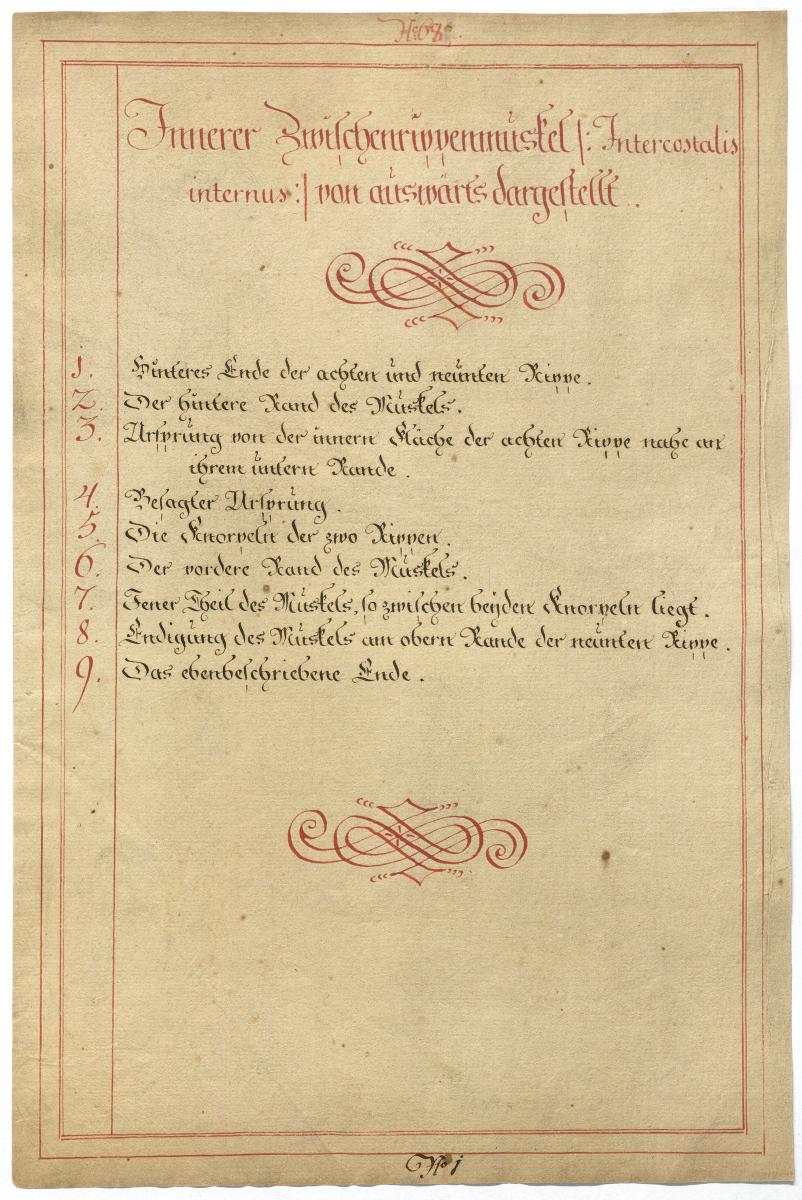 No 68.
Innerer Zwischenrippenmuskel /: Intercostalis
internus :/ von auswärts dargestellt.
1. Hinteres Ende der achten und neunten Rippe.
2. Der hintere Rand des Muskels.
3. Ursprung von der innern Fläche der achten Rippe nahe an
ihrem untern Rande.
4. Besagter Ursprung.
5. Die Knorpeln der zwo Rippen.
6. Der vordere Rand des Muskels.
7. Jener Theil des Muskels, so zwischen beyden Knorpeln liegt.
8. Endigung des Muskels am obern Rande der neunten Rippe.
9. Das ebenbeschriebene Ende.
No 1